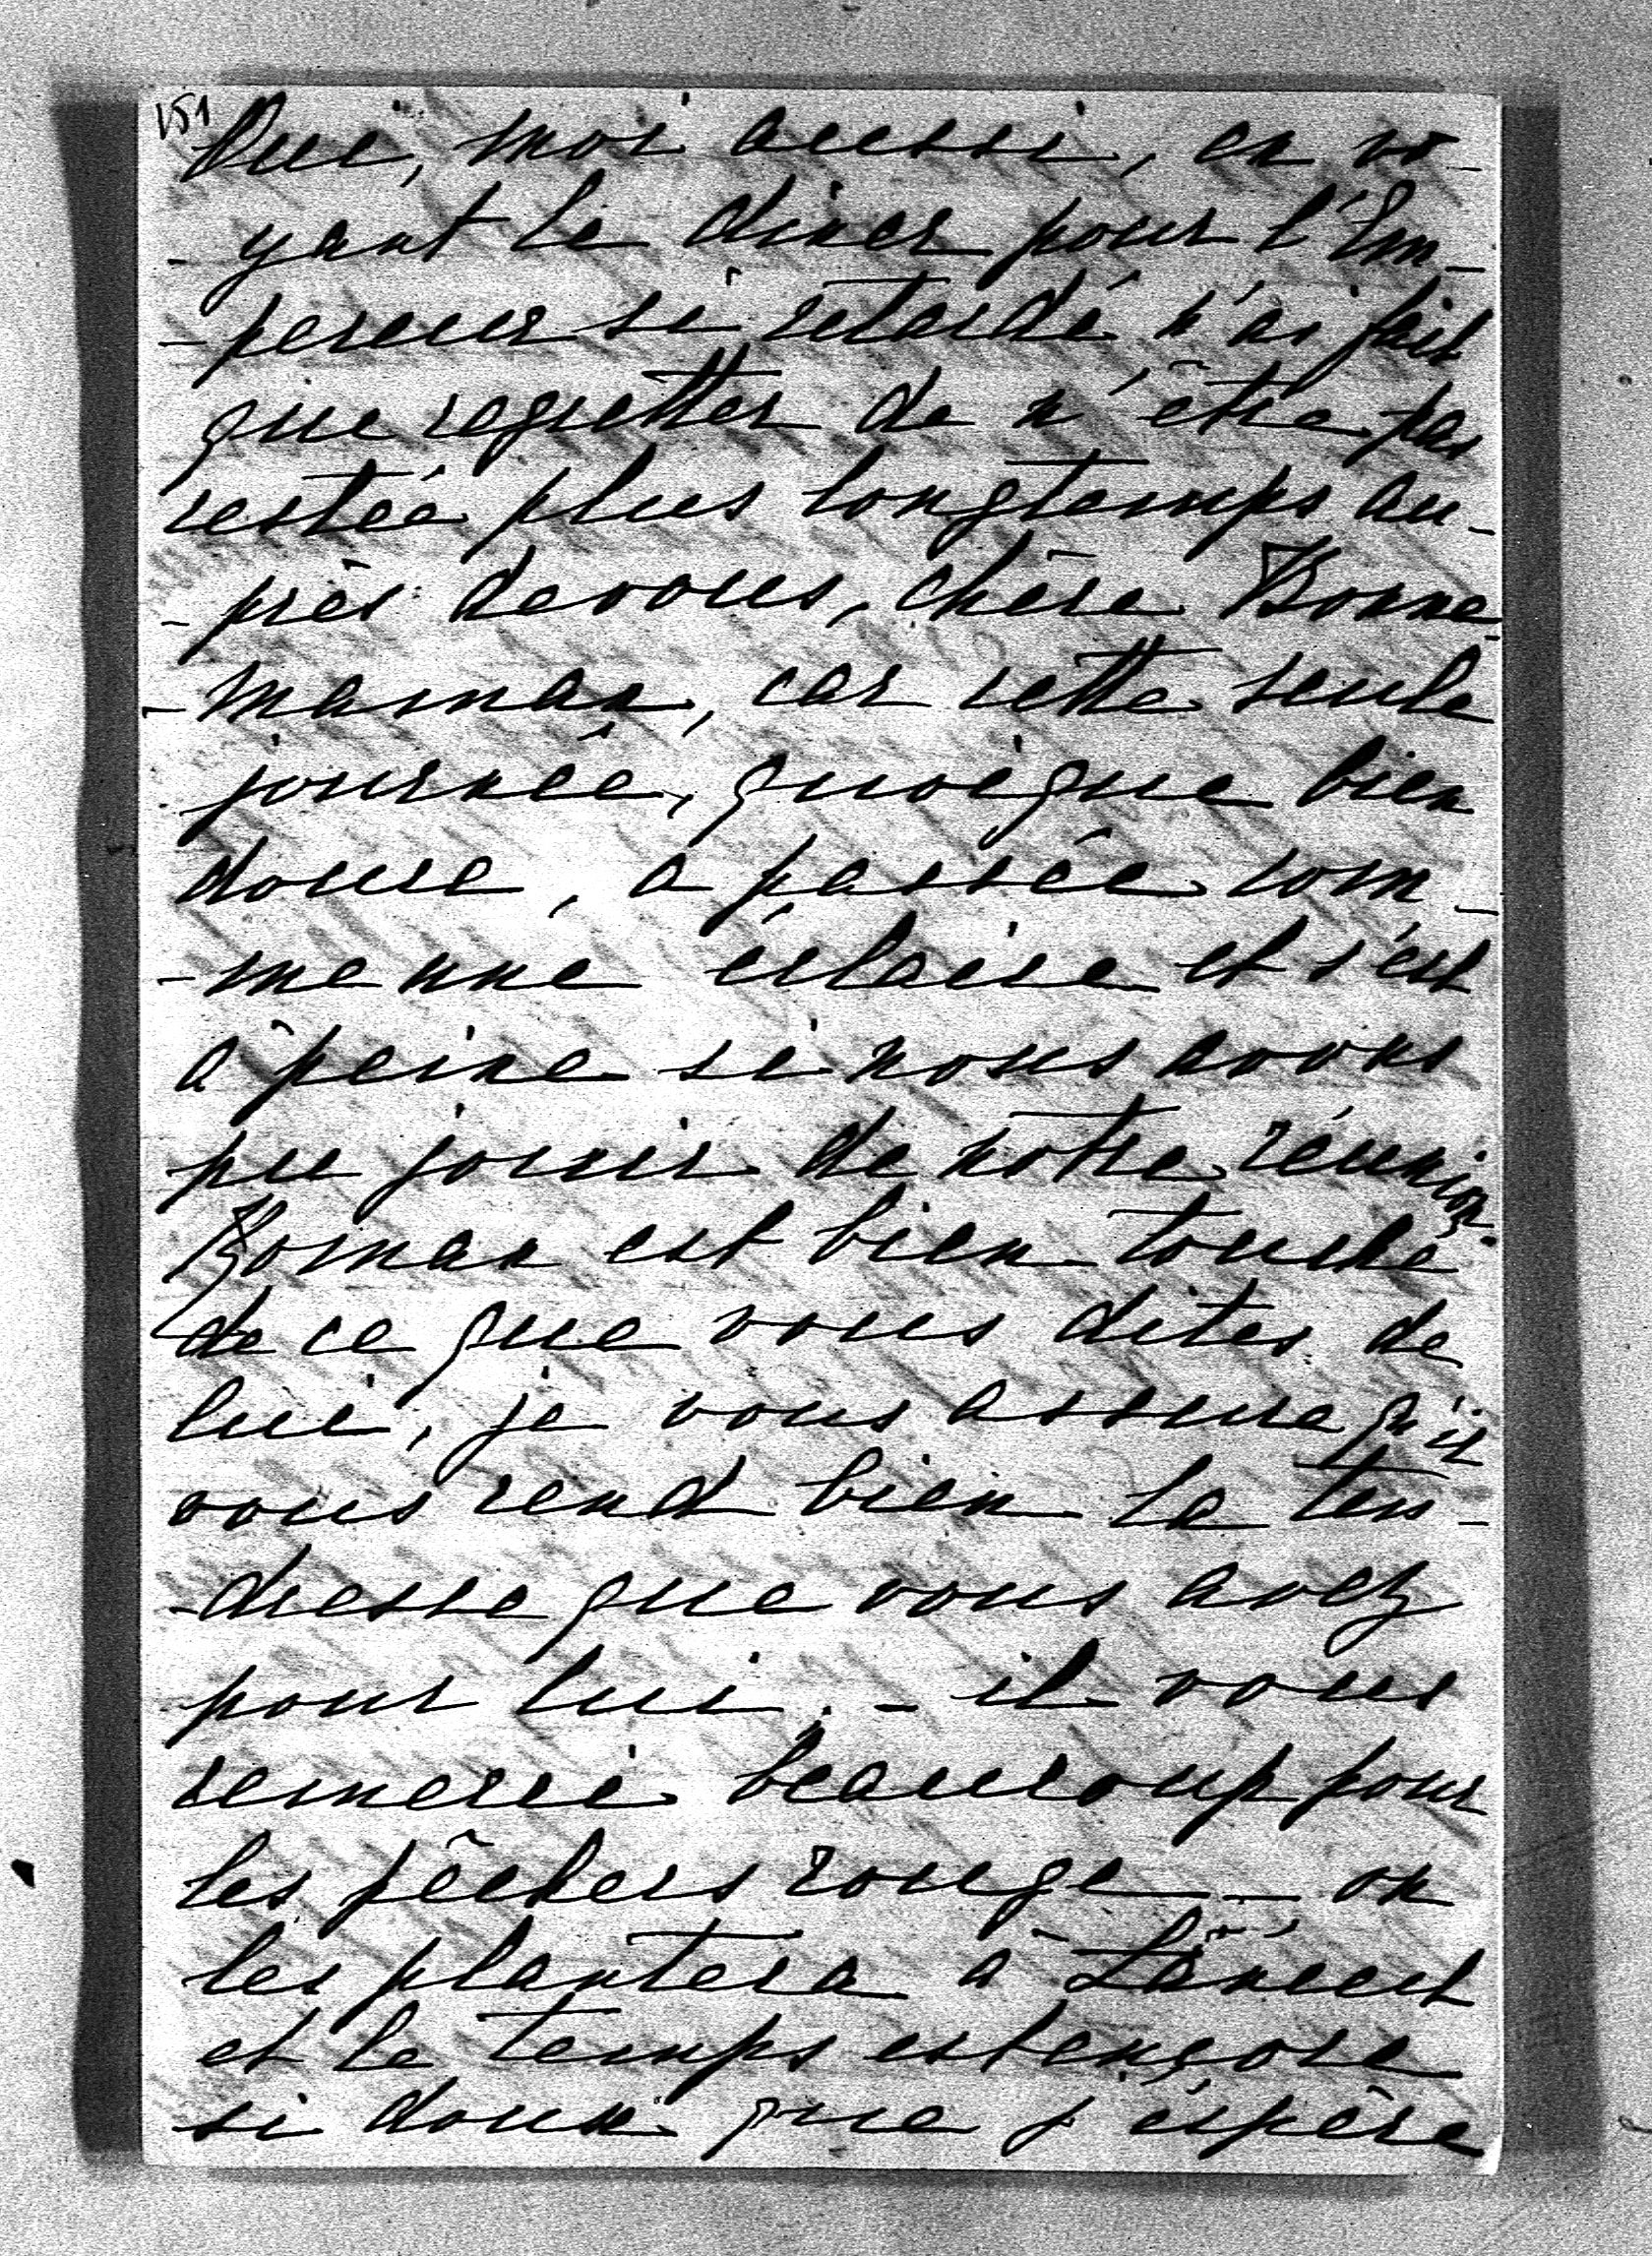 151
Oui, moi aussi, en vo-
-yant le diner pour l'Em-
-pereur si retardé n'ai fait
que regretter de n'être pas
restée plus longtemps au-
-près de vous, chère Bonne-
-maman, car cette seule
journée, quoique bien
douce, a passée com-
-me une éclaire et c'est
à peine si nous avons
pu jouir de notre réunion.
Roman est bien touché
de ce que vous dites de
lui, je vous assure qu'il
vous rend bien la ten-
-dresse que vous avez
pour lui. - il vous
remercie beaucoup pour
les pêchers rouge - on
les plantera à Łancut
et le temps est encore
si doux que j'éspère